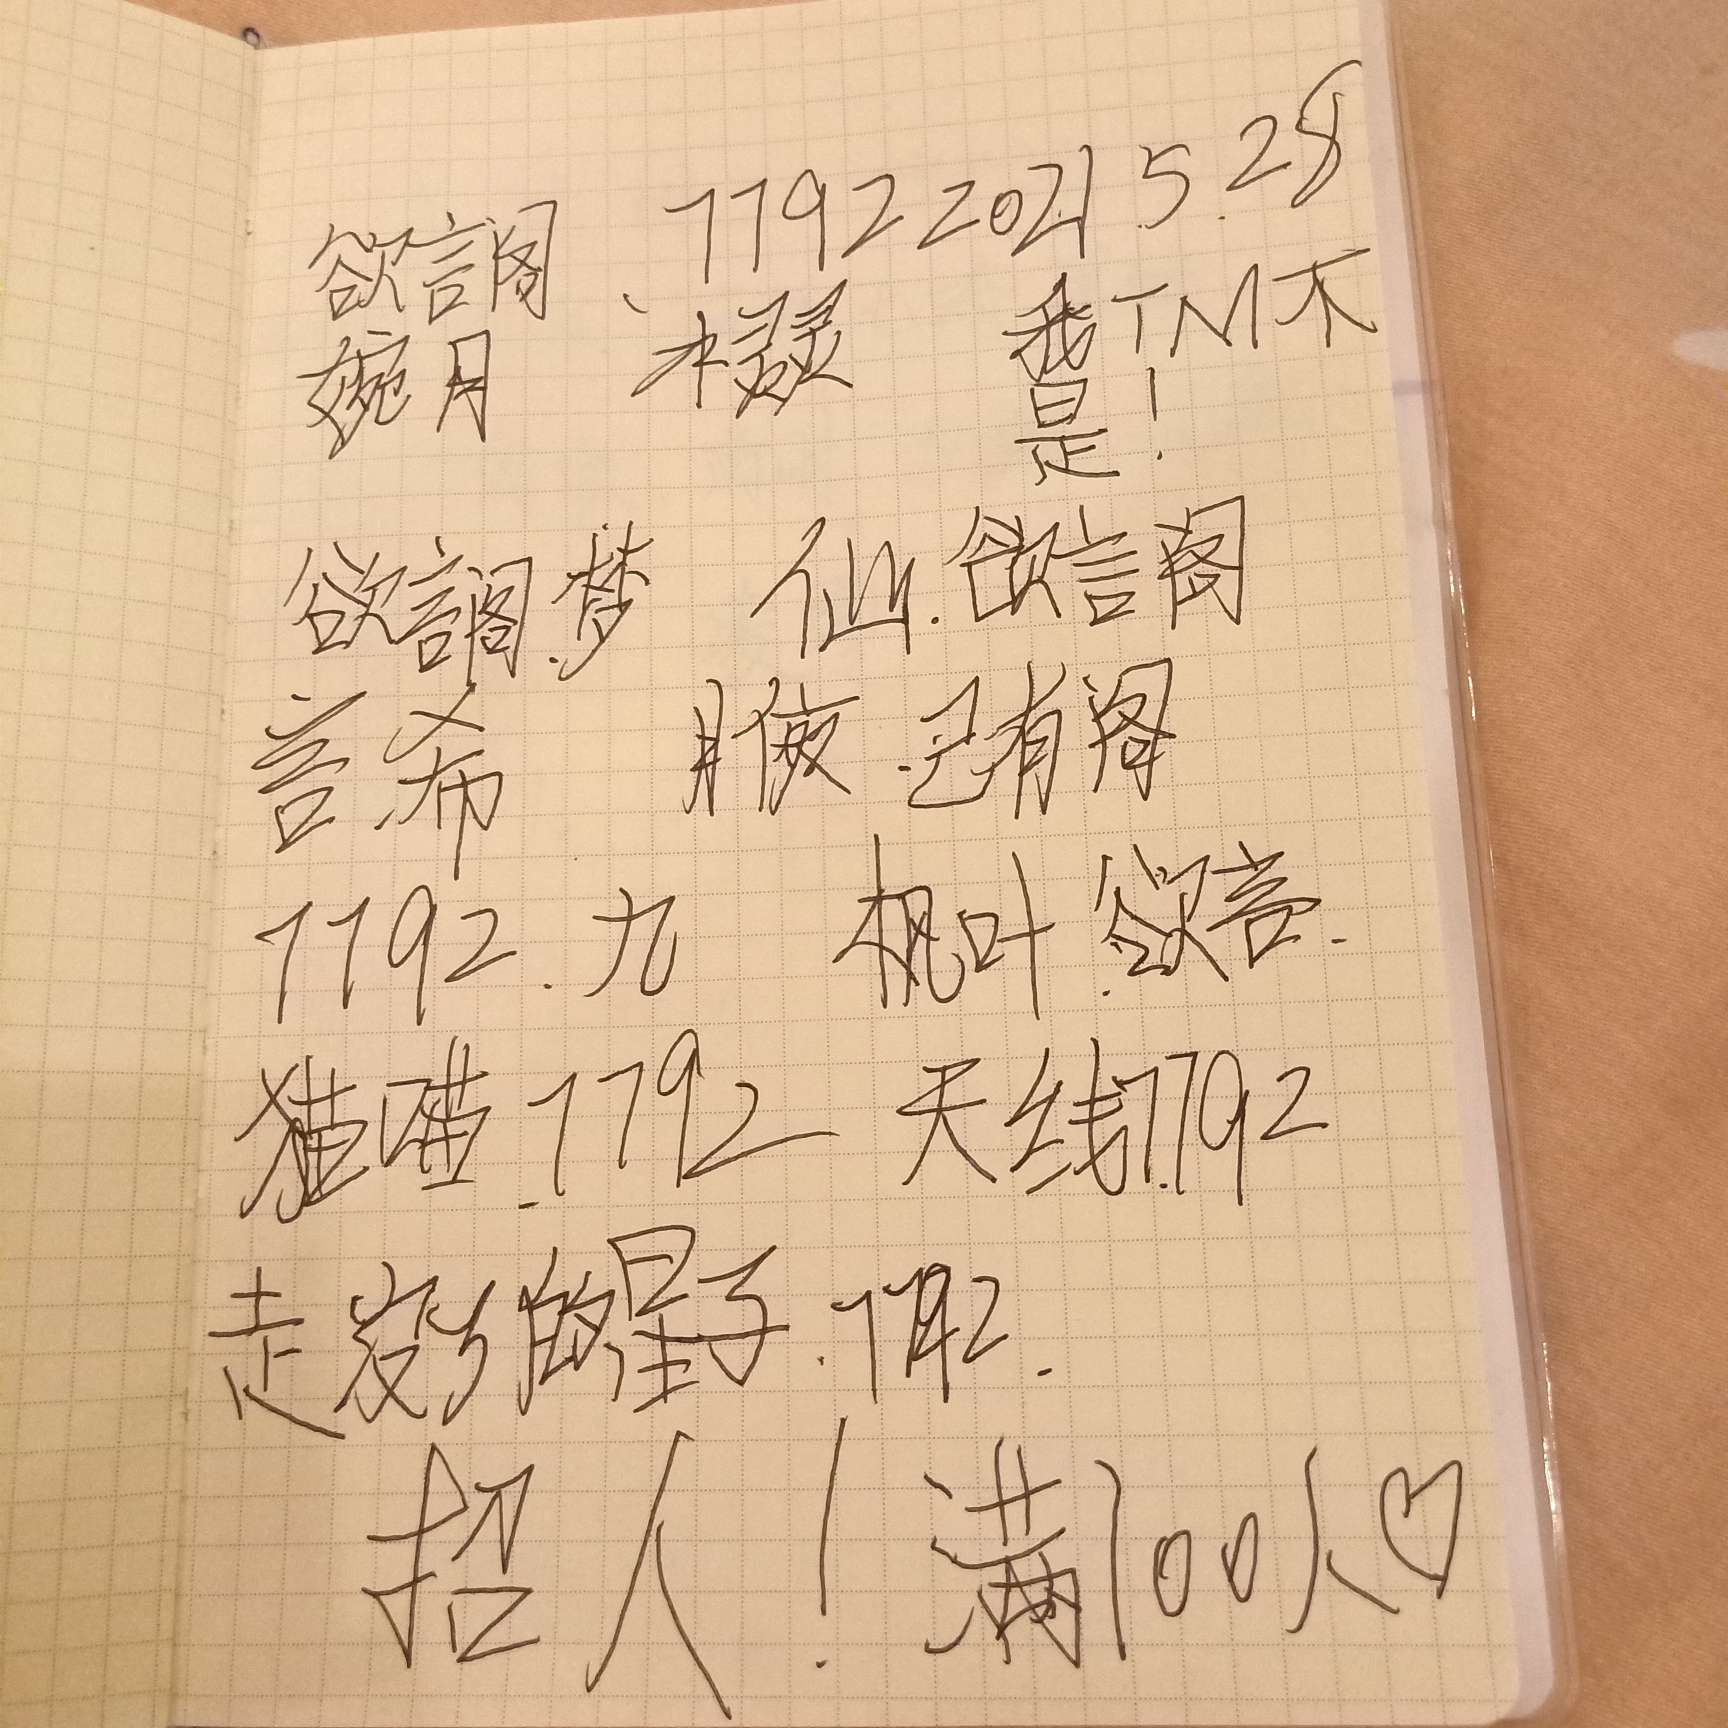 欲言阁 .7792 2021 5.28
婉月 我TM不
是！
欲言阁.梦 仙.欲言阁
言.希 月 .已有阁
7792.九 枫叶.欲言.
猫喵.7792 天线7.792
走 的星子.7792.
招人！满100人♡